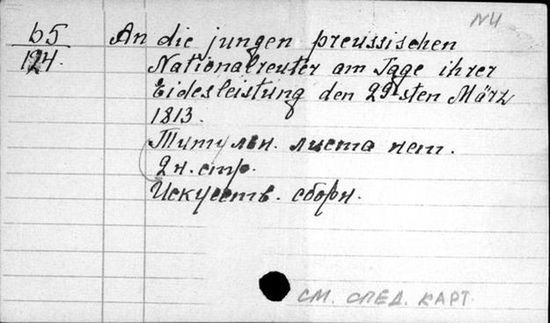 NU
65
124.
An die jungen preussischen
Nationalreuter am Tage ihrer
Eidesleistung den 29sten März
1813.
Титульн. листа нет.
2 н. стр.
Искусств. сборн.
СМ. СПЕД. КАРТ.